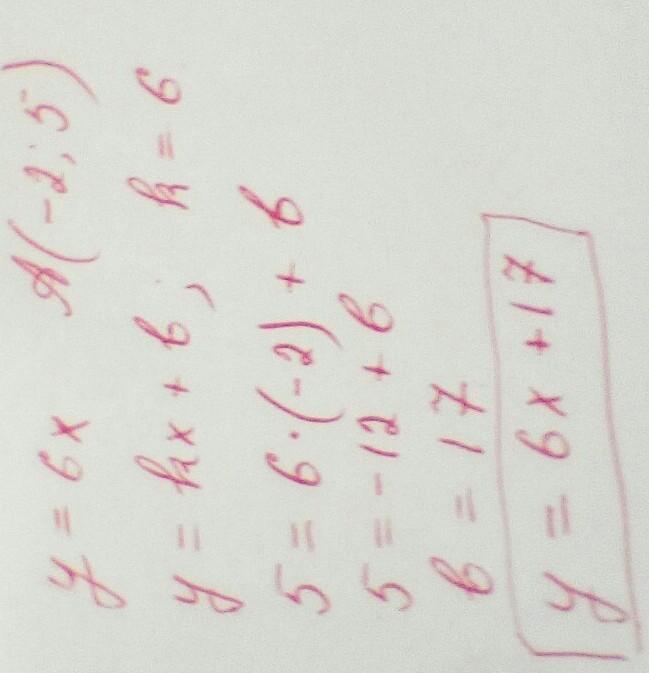 y = 6x A(-2; 5)
y = kx + b, k = 6
5 = 6·(-2) + b
5 = -12 + b
b = 17
y = 6x + 17